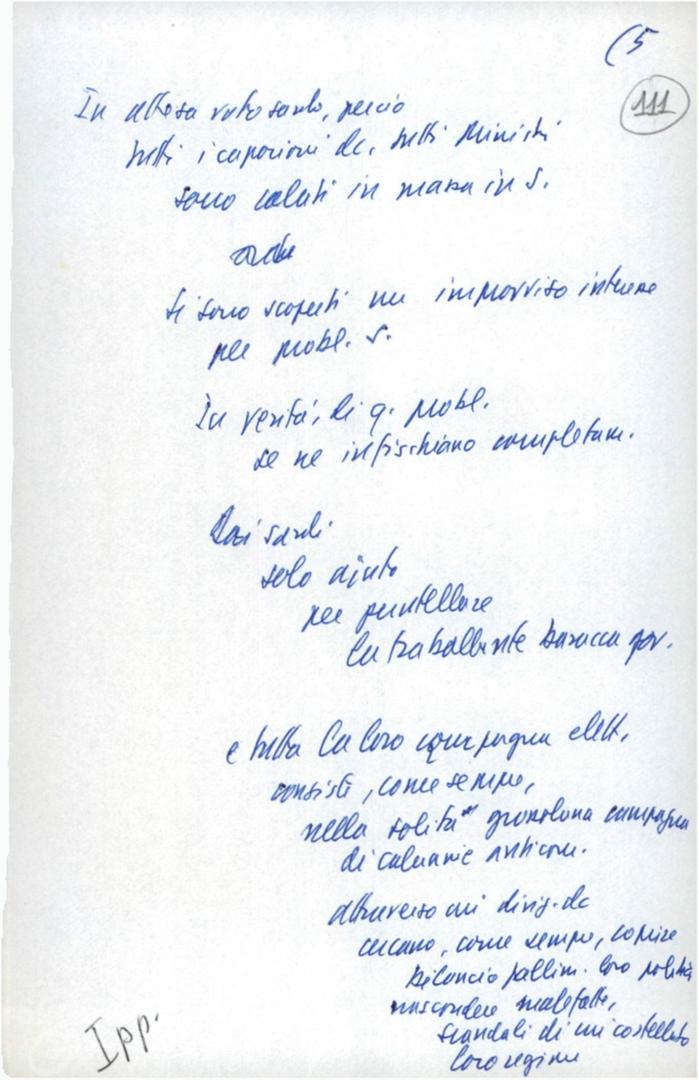 (5
111
In attesa voto sardo, perciò
tutti i caporioni dc, tutti Ministri
sono calati in massa in S.
Si sono scoperti un improvviso interesse
per probl. S.
In verità, di q. probl.
se ne infischiano completam.
Dai sardi
solo aiuto
per puntellare
la traballante baracca gov.
e tutta la loro campagna elett.
consiste, come sempre,
nella solita grossolana campagna
di calunnie anticom.
attraverso cui dirig. dc
cercano, come sempre, coprire
bilancio fallim. loro politica
nascondere malefatte,
scandali di cui costellato
loro regime
Ipp.